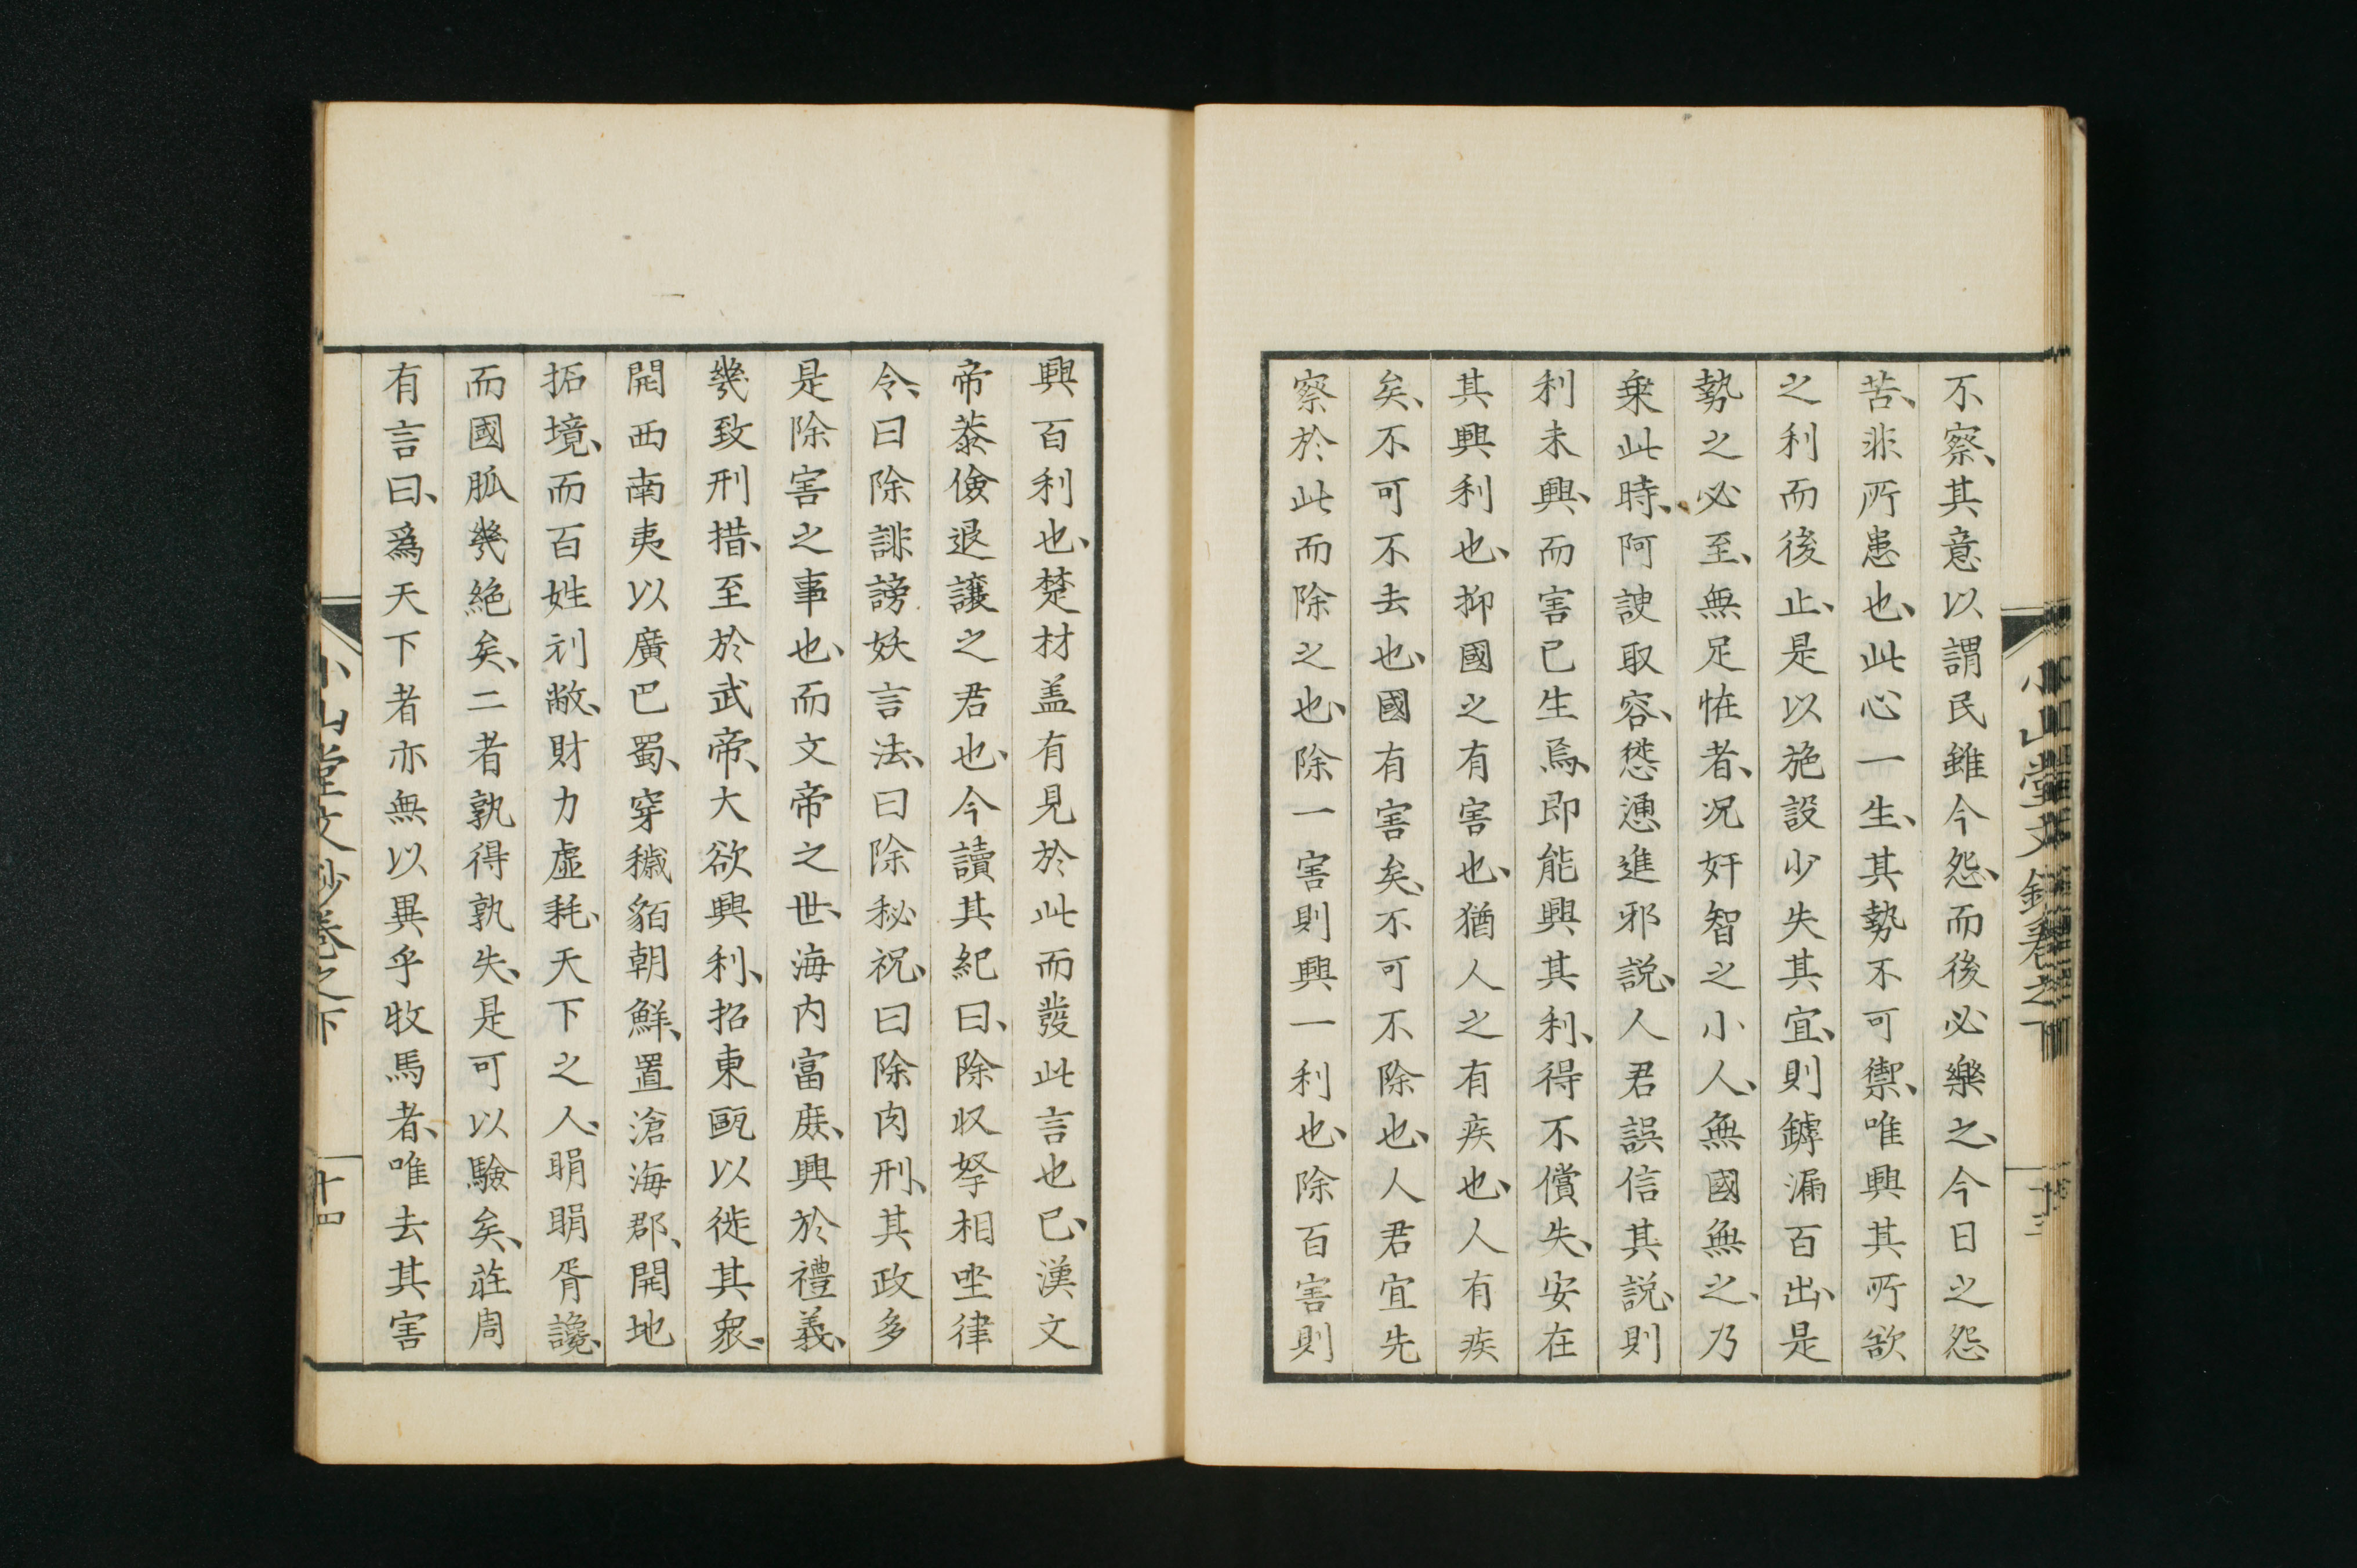 不察、其意以謂民雖今怨、而後必樂之、今日之怨
苦、非所患也、此心一生、其勢不可禦、唯興其所欲
之利而後止、是以施設少失其宜、則鏬漏百出、是
勢之必至、無足恠者、况奸智之小人、無國無之、乃
乗此時、阿諛取容、慫慂進邪説、人君誤信其説、則
利未興、而害已生焉、即能興其利、得不償失、安在
其興利也、抑國之有害也、猶人之有疾也、人有疾
矣、不可不去也、國有害矣、不可不除也、人君宜先
察於此而除之也、除一害則興一利也、除百害則
小山堂文鈔卷之下
興百利也、楚材盖有見於此而發此言也已、漢文
帝恭儉退讓之君也、今讀其紀曰、除収孥相坐律
令、曰除誹謗妖言法、曰除秘祝、曰除肉刑、其政多
是除害之事也、而文帝之世、海内富庶、興於禮義、
幾致刑措、至於武帝、大欲興利、招東甌以徙其衆、
開西南夷以廣巴蜀、穿穢貊朝鮮、置滄海郡、開地
拓境、而百姓刓敝、財力虚耗、天下之人、睊睊胥讒、
而國脈幾絶矣、二者孰得孰失、是可以驗矣、莊周
有言曰、爲天下者亦無以異乎牧馬者、唯去其害
小山堂文鈔卷之下
十四